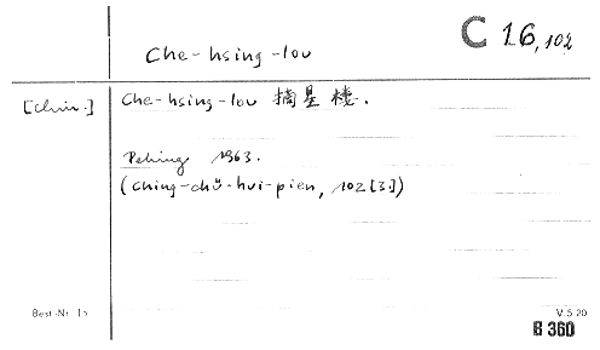 Che-hsing-lou
C 16,102
[chin.]
Che-hsing-lou 摘星楼.
Peking 1963.
(Ching-chü-hui-pien, 102[3.])
Best-Nr. 15
V. 5 20
B 360